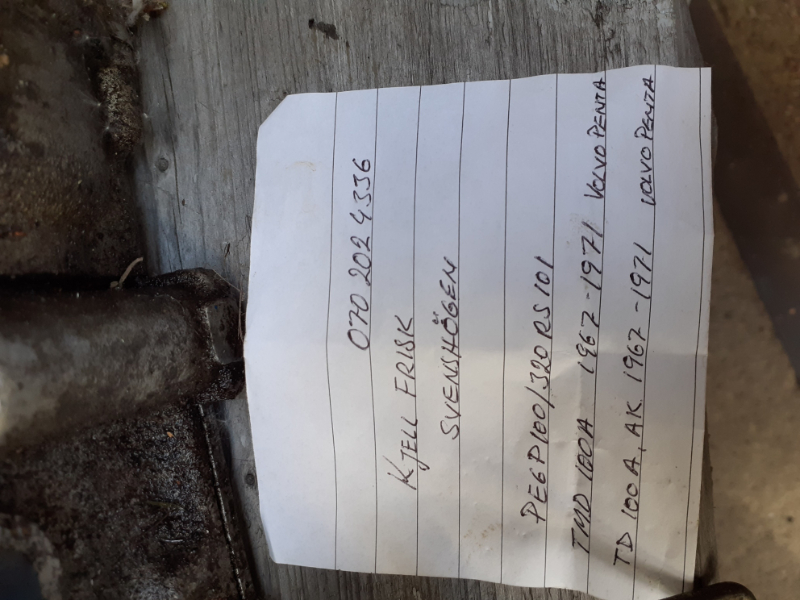 070 202 4336
KJELL FRISK
SVENSHÖGEN
PE6P100/320RS101
TMD 100A 1967-1971 VOLVO PENTA
TD 100A, AK 1967-1971 VOLVO PENTA